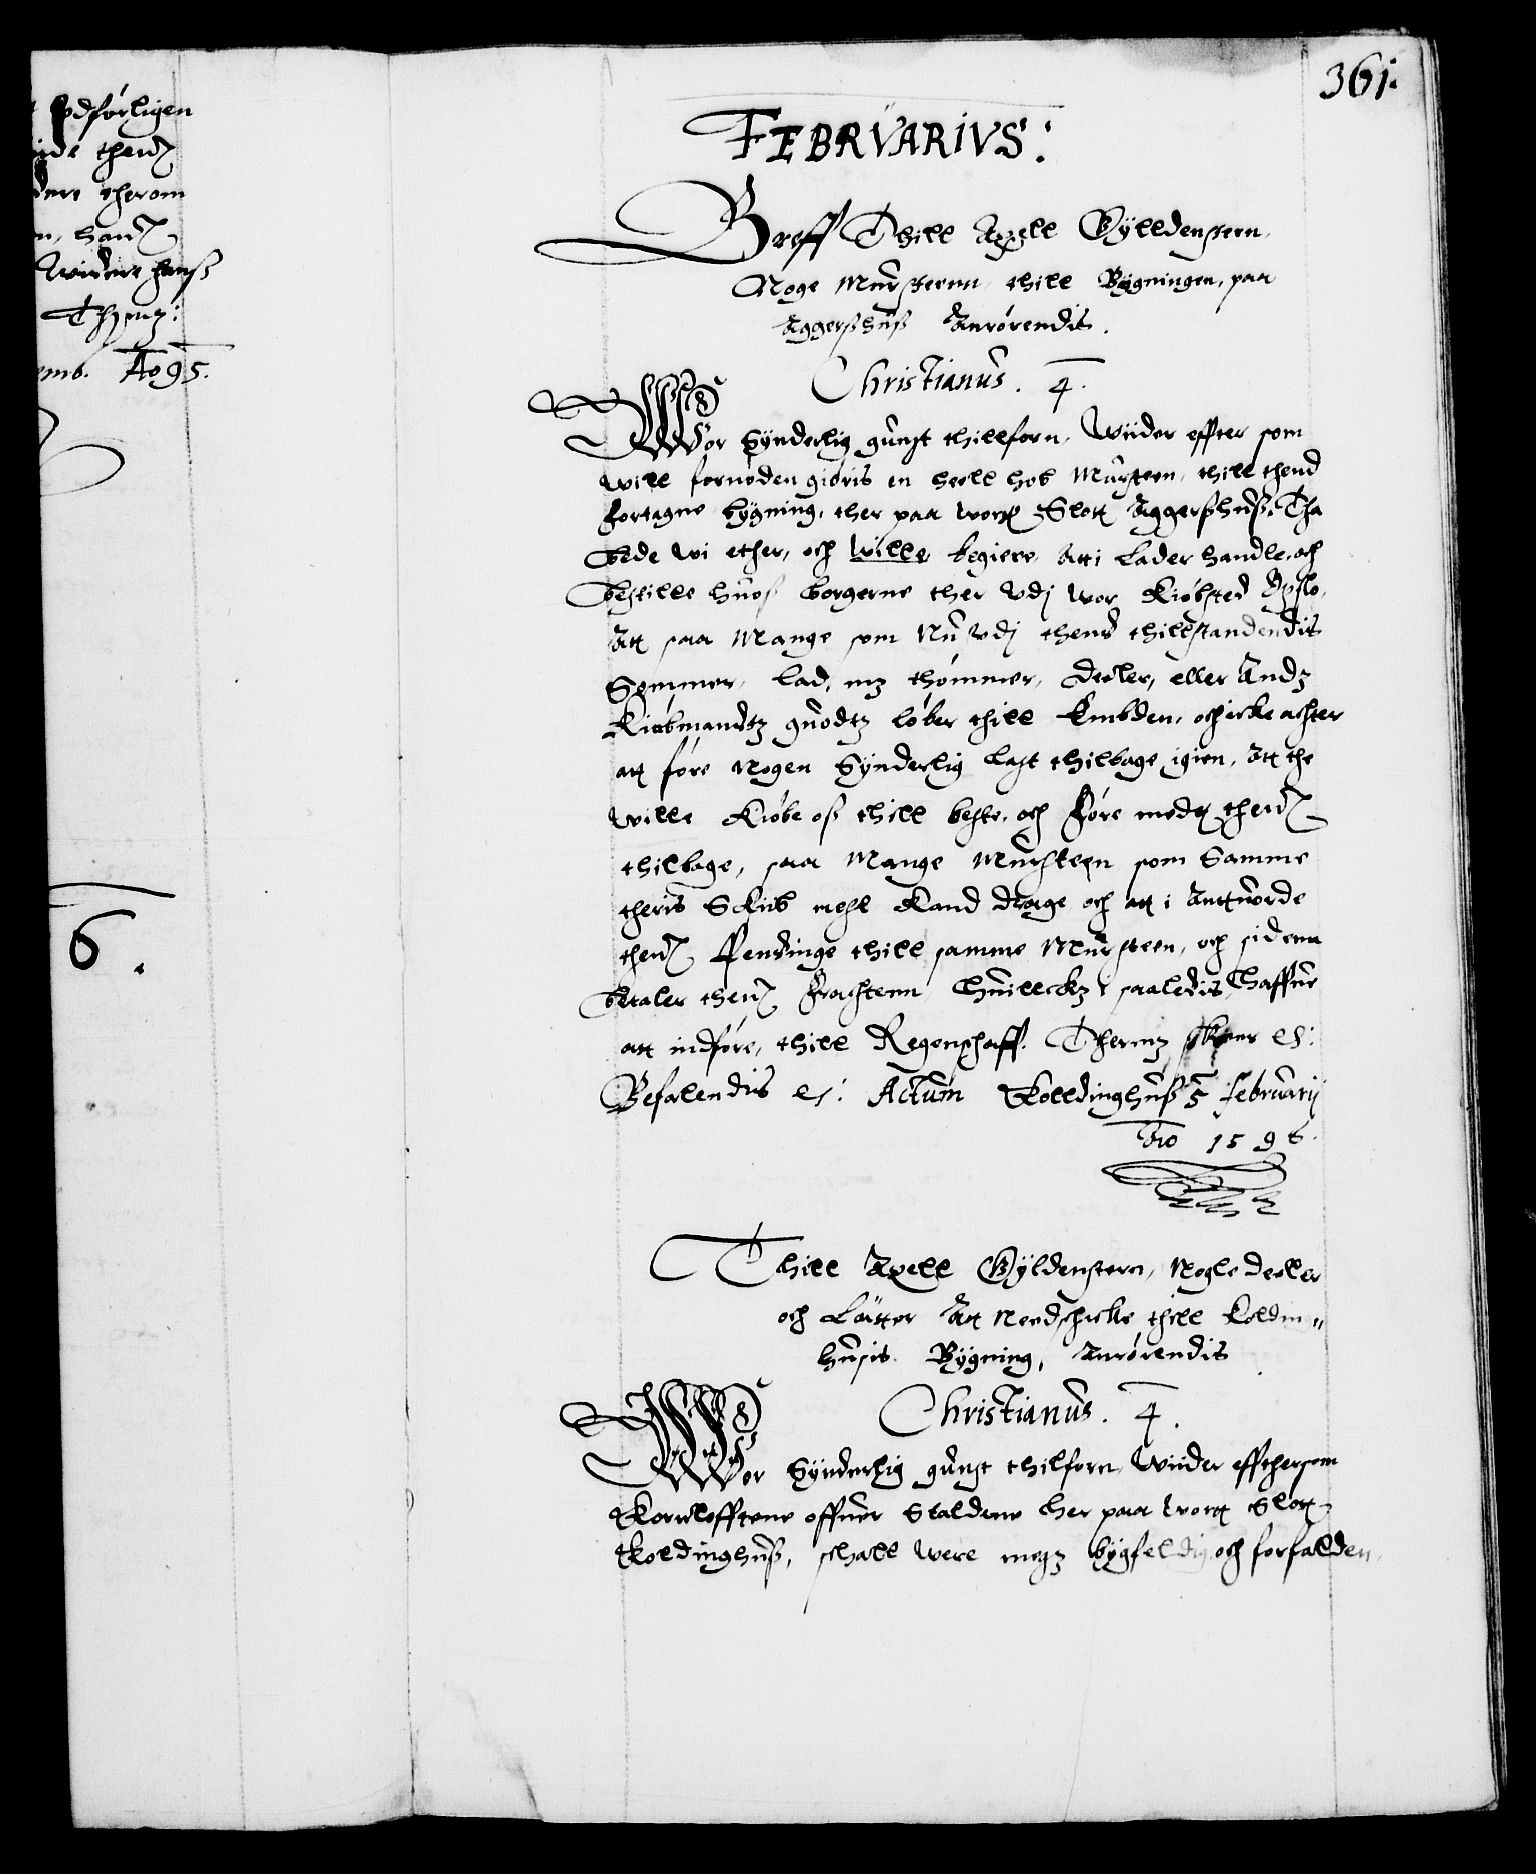 361.
Udførligen
thend
therom
hand
Windere hans
Thermz:
emb. Ao 95.
6.
FEBRVARIVS:
Breff Thill Axell Gylldenstern,
Noge Mursteenn thill Bygningen, paa
Aggershuss Anrørendis.
Christianus. 4.
Wor Synderlig gunst thillforn, Wiider effter som
will fornøden giøris en heell hob Mursteen, thill thend
fortagne bygning, ther paa wortt Slott Aggershuss, Tha
bede wi ether, och wille begiere Att i Lader handle, och
bestille huoss borgerne ther vdj wor Kiøbsted Opslo,
Att saa Mange som Nu vdj thend thillstandendis
Sommer, lad, mz thømmer, Deeler, eller Andz
Kiøbmandtz guodtz løber thill Embden, och icke achter
att føre Nogen Synderlig Last thilbage igien, Att the
wille Kiøbe oss thill beste, och føre medt thend
thilbage, saa Mange Mursteen som Samme
theris Skib mest Kand drage och att i Anttuorde
thend Pendinge thill samme Mursteen, och sidenn
betaler thend Fragtenn huilleckz i saaledis haffue
att indføre, thill Regenschaff. Thermz skeer etc:
Befalendis etc: Actum Kolldinghuss 5 februarij
Ao 1596.
Thill Axell Gyldenstern, Nogle deeller
och Lætter At Needschicke thill Kolding„
husis Bygning, Anrørendis
Christianus. 4.
Wor Synderlig gunst thilforn, Wiider effthersom
Kornlofftene offuer Staldene her paa wortt Slott
Koldinghuss, schall were megz bygfeldig och forfalden,